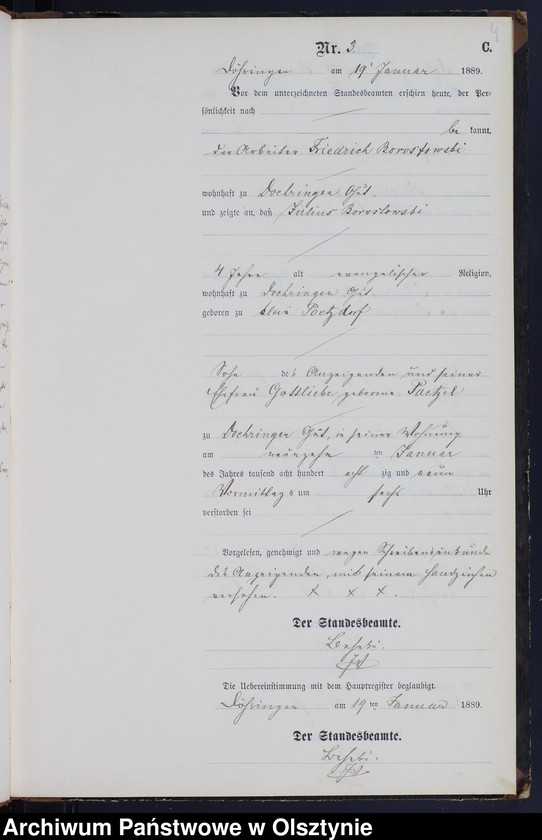 4
Nr. 3. C.
Döhringen am 19t Januar 1889.
Vor dem unterzeichneten Standesbeamten erschien heute, der Per-
sönlichkeit nach
be kannt,
der Arbeiter Friedrich Borostowski
wohnhaft zu Doehringen Gut
und zeigte an, daß Julius Borostowski
4 Jahre alt evangelischer Religion,
wohnhaft zu Doehringen Gut
geboren zu Klein
Sohn des Anzeigenden und seiner
Ehefrau Gottliebe, geborene Paetzel
zu Doehringen Gut, in seiner Wohnung
am neunzehn ten Januar
des Jahres tausend acht hundert acht zig und neun
Vormittags um sechs Uhr
verstorben sei
Vorgelesen, genehmigt und wegen Schreibensunkunde
des Anzeigenden, mit seinem Handzeichen
versehen. X X X.
Der Standesbeamte.
Die Uebereinstimmung mit dem Hauptregister beglaubigt.
Döhringen am 19 ten Januar 1889.
Der Standesbeamte.
Archiwum Państwowe w Olsztynie